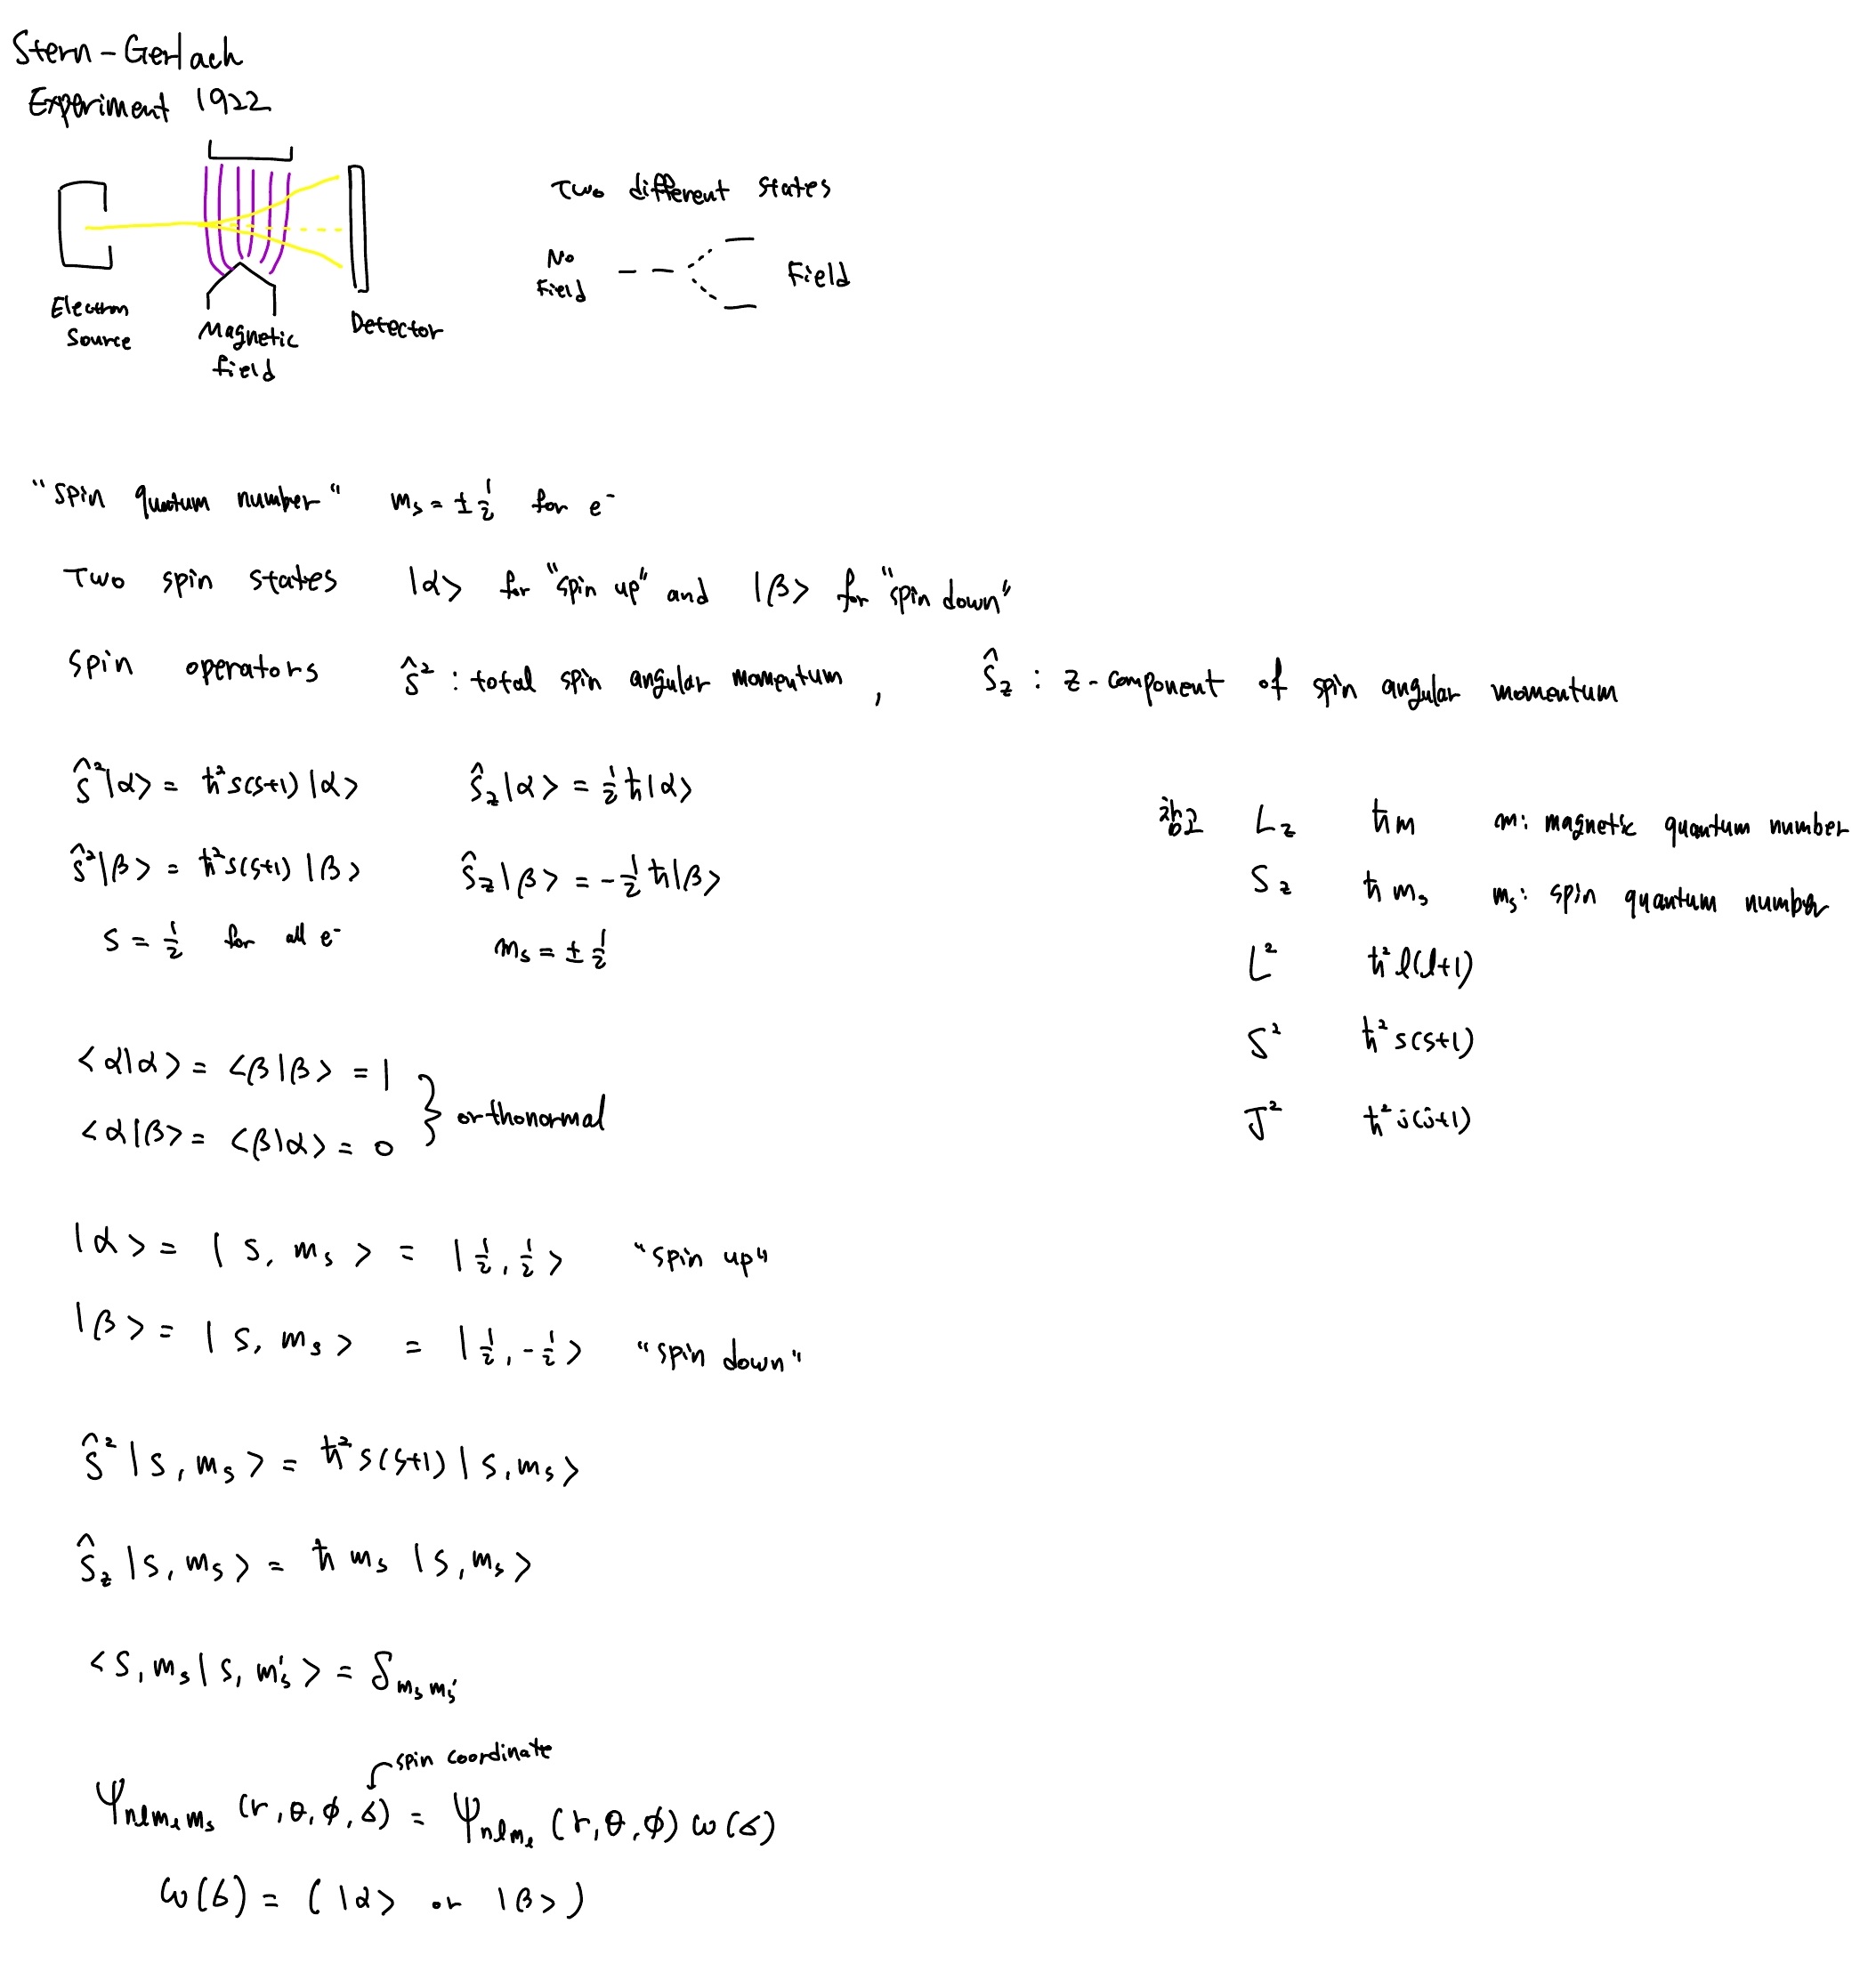 Stern-Gerlach
Experiment 1922
Electron
Source
Magnetic
field
Detector
Two different states
No
Field
Field
"spin quatum number" mₛ = ±½ for e⁻
Two spin states |α> for "spin up" and |β> for "spin down"
spin operators ŝ² : total spin angular momentum , ŝ_z : z-component of spin angular momentum
ŝ²|α> = ħ²s(s+1)|α> ŝ_z|α> = ½ħ|α>
ŝ²|β> = ħ²s(s+1)|β> ŝ_z|β> = -½ħ|β>
s = ½ for all e⁻ mₛ = ±½
L_z ħm m: magnetic quantum number
S_z ħmₛ mₛ: spin quantum number
L² ħ²l(l+1)
S² ħ²s(s+1)
J² ħ²j(j+1)
<α|α> = <β|β> = 1
<α|β> = <β|α> = 0
} orthonormal
|α> = |s, mₛ> = |½, ½> "spin up"
|β> = |s, mₛ> = |½, -½> "spin down"
ŝ²|s, mₛ> = ħ²s(s+1)|s, mₛ>
ŝ_z|s, mₛ> = ħmₛ|s, mₛ>
<s, mₛ|s, mₛ'> = δ_{mₛmₛ'}
spin coordinate
Ψ_{nlm_lmₛ}(r, θ, ϕ, σ) = Ψ_{nlm_l}(r, θ, ϕ) ω(σ)
ω(σ) = (|α> or |β>)